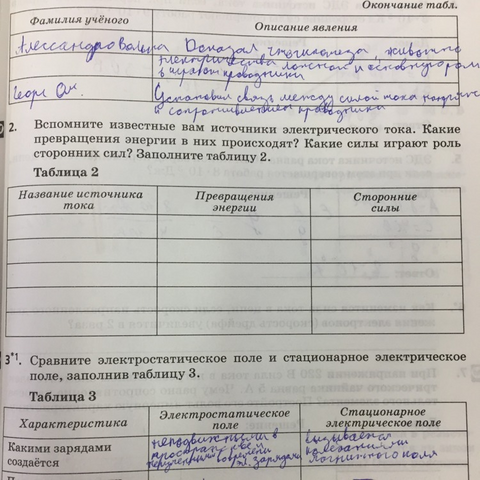 Окончание табл.
Фамилия учёного Описание явления
Алессандро Вольта Доказал
электричества ложной и основную роль
в играют проводники
Георг Ом. Установил связь между силой тока
и сопротивлением проводника
2. Вспомните известные вам источники электрического тока. Какие
превращения энергии в них происходят? Какие силы играют роль
сторонних сил? Заполните таблицу 2.
Таблица 2
Название источника Превращения Сторонние
тока энергии силы
3*1. Сравните электростатическое поле и стационарное электрическое
поле, заполнив таблицу 3.
Таблица 3
Характеристика Электростатическое Стационарное
поле электрическое поле
Какими зарядами неподвижными в вызывается
создаётся пространстве
зарядами магнитного поля